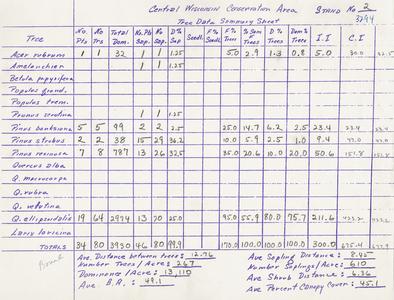 Central Wisconsin Conservation Area STAND No 2
Tree Data Summary Sheet 3294
Tree No Pts No Trs Total Dom. No. Pts Sap. No. Sap. D% Sap F% Seedl. Seedl. F% Trees % Sum F Trees D% Trees Dom % Trees I.I C.I
Acer rubrum 1 1 32 1 1 1.25 5.0 2.9 1.3 0.8 5.0
Amelanchier 1 1 1.25
Betula papyrifera
Populus grand.
Populus trem.
Prunus serotina 1 1 1.25
Pinus banksiana 5 5 99 2 2 2.5 25.0 14.7 6.2 2.5 23.4 23.4
Pinus strobus 2 2 38 15 29 36.2 10.0 5.9 2.5 1.0 9.4
Pinus resinosa 7 8 787 13 26 32.5 35.0 20.6 10.0 20.0 50.6 151.8
Quercus alba
Q. macrocarpa
Q. rubra
Q. velutina
Q. ellipsoidalis 19 64 2974 13 20 25.0 95.0 55.9 80.0 75.7 211.6
Larix laricina
TOTALS 34 80 3930 46 80 99.9 170.0 100.0 100.0 100.0 300.0 675.4
Ave Distance between trees: 12.76 Ave Sapling Distance: 8.45
Number Trees / Acre: 267 Number Saplings/Acre: 610
Dominance / Acre: 13,110 Ave Shrub Distance: 6.36
Ave. B.A.: 49.1 Ave Percent Canopy Cover: 45.1